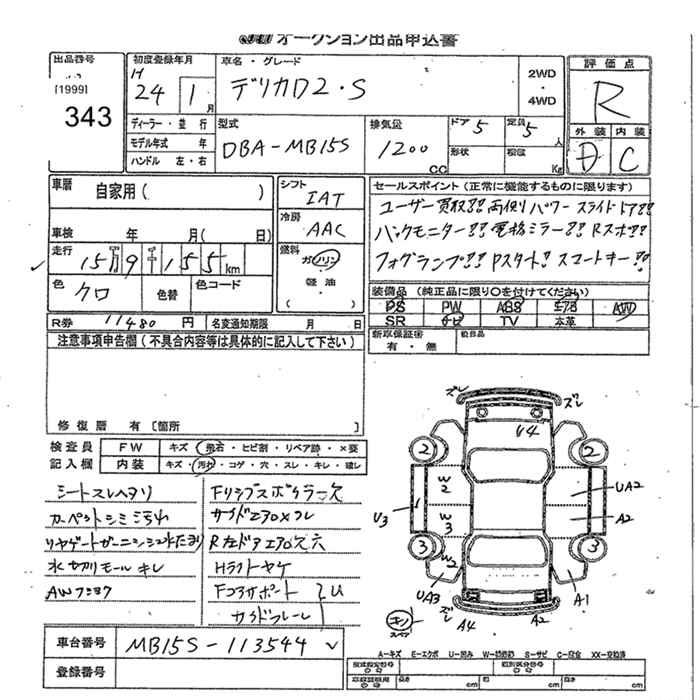 オークション出品申込書
出品番号
[1999]
343
初度登録年月
H
24 1月
車名・グレード
デリカD2・S
2WD
・
4WD
評価点
R
外装 内装
D C
ディーラー・並行
モデル年式 年
ハンドル 左・右
型式
DBA-MB15S
排気量
1200
cc
ドア 5
形状
定員 5人
積載 Kg
車歴
自家用( )
車検 年 月( 日)
走行
15万9千155km
色
クロ
色替
色コード
シフト
IAT
冷房
AAC
燃料
ガソリン
軽油
セールスポイント(正常に機能するものに限ります)
ユーザー買取!! 両側パワースライドドア!!
バックモニター!! 電格ミラー!! Rスポ!!
フォグランプ!! Pスタート!! スマートキー!!
装備品(純正品に限り○を付けてください)
PS PW ABS エアB AW
SR ナビ TV 本革
新車保証書
有・無
後日品
R券 11480円
名変通知期限 月 日
注意事項申告欄(不具合内容等は具体的に記入して下さい)
修復歴 有〔箇所 〕
検査員
記入欄
FW キズ・飛石・ヒビ割・リペア跡・×要
内装 キズ・汚れ・コゲ・穴・スレ・キレ・破レ
シートスレヘタリ
カーペットシミ汚れ
リヤゲートガーニッシュ
水切リモール キレ
AWフショク
Fリップスポイラー欠
サイドエアロ×フレ
R左ドアエアロ欠穴
Hライトヤケ
Fコアサポート
サイドフレーム
U
ズレ
ズレ
U4
2
2
W2
W3
W2
U3
UA2
A2
3
3
UA3
A1
ズレ
A4
A2
キン
スペア
車台番号
MB15S-113544
登録番号
A-キズ E-エクボ U-凹み W-補修跡 S-サビ C-腐食 XX-交換済
型式指定番号
類別区分番号
長さ cm
幅 cm
高さ cm